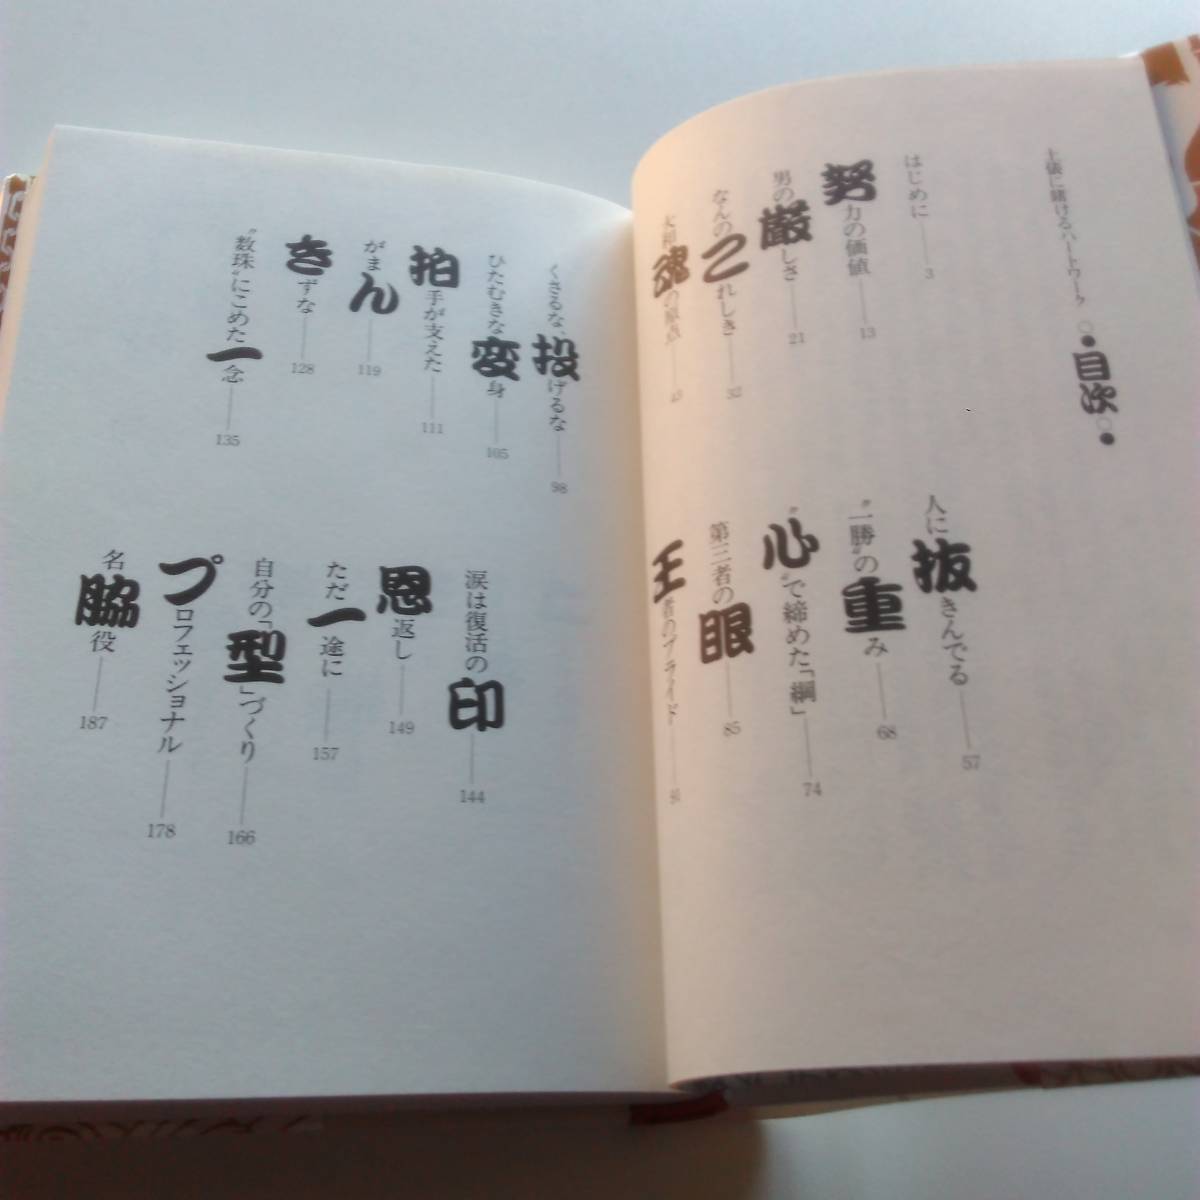 土俵に賭けるハートワーク ○●目次○●
はじめに 3
努力の価値 13
男の厳しさ 21
なんのこれしき 32
大和魂の原点 43
人に抜きんでる 57
“一勝”の重み 68
“心”で締めた「綱」 74
第三者の眼 85
王者のプライド 91
くさるな、投げるな 98
ひたむきな変身 105
拍手が支えた 111
がまん 119
きずな 128
“数珠”にこめた一念 135
涙は復活の印 144
恩返し 149
ただ一途に 157
自分の「型」づくり 166
プロフェッショナル 178
名脇役 187